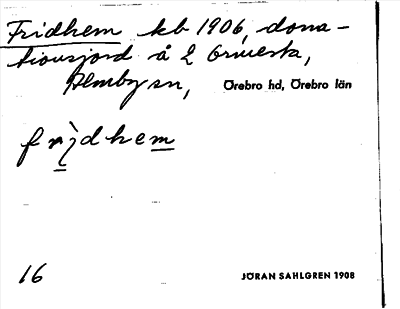 Fridhem kb 1906, dona-
tionsjord å L Ormesta,
Almby sn, Örebro hd, Örebro län
frìdhem
16 JÖRAN SAHLGREN 1908